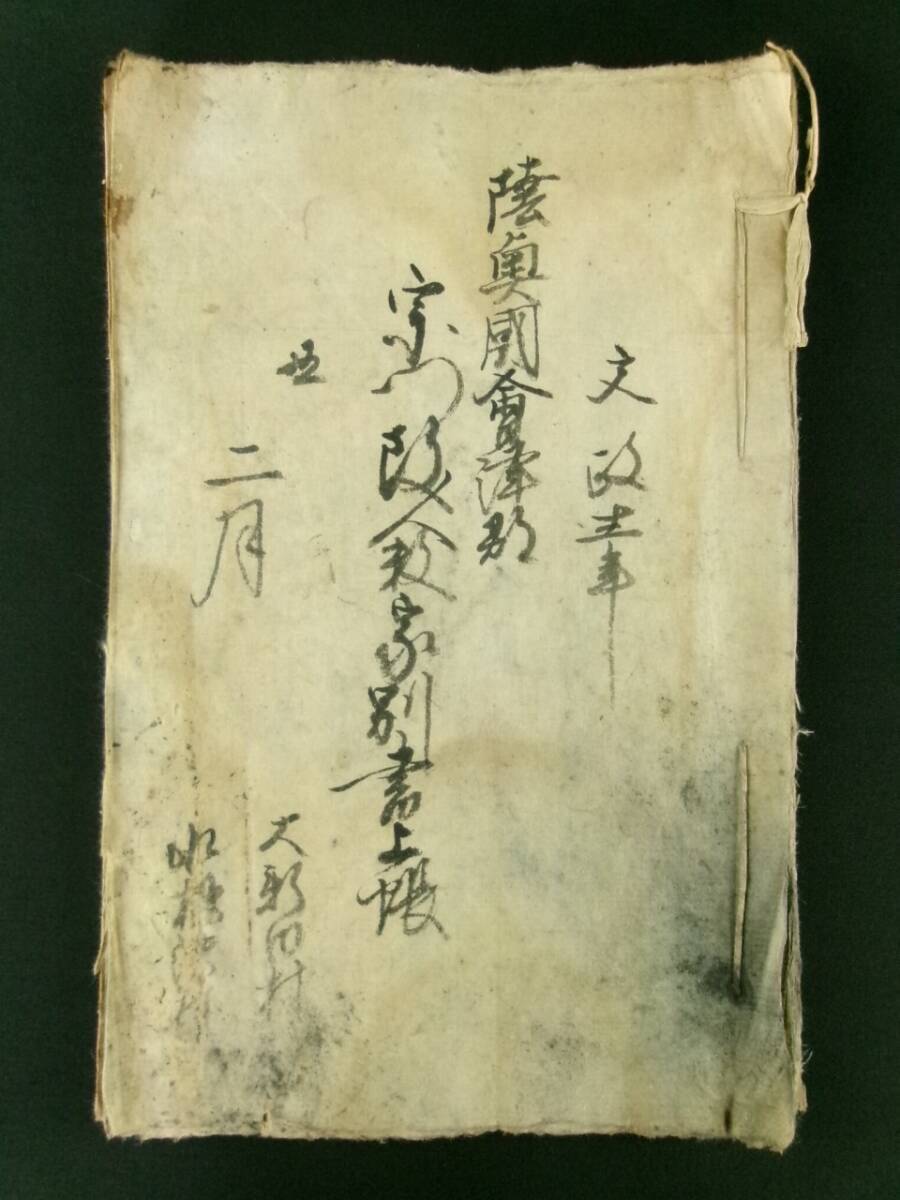 文政十二年
陸奥國會津郡
宗門改人数家別書上帳
丑
二月
大新田村
水 村